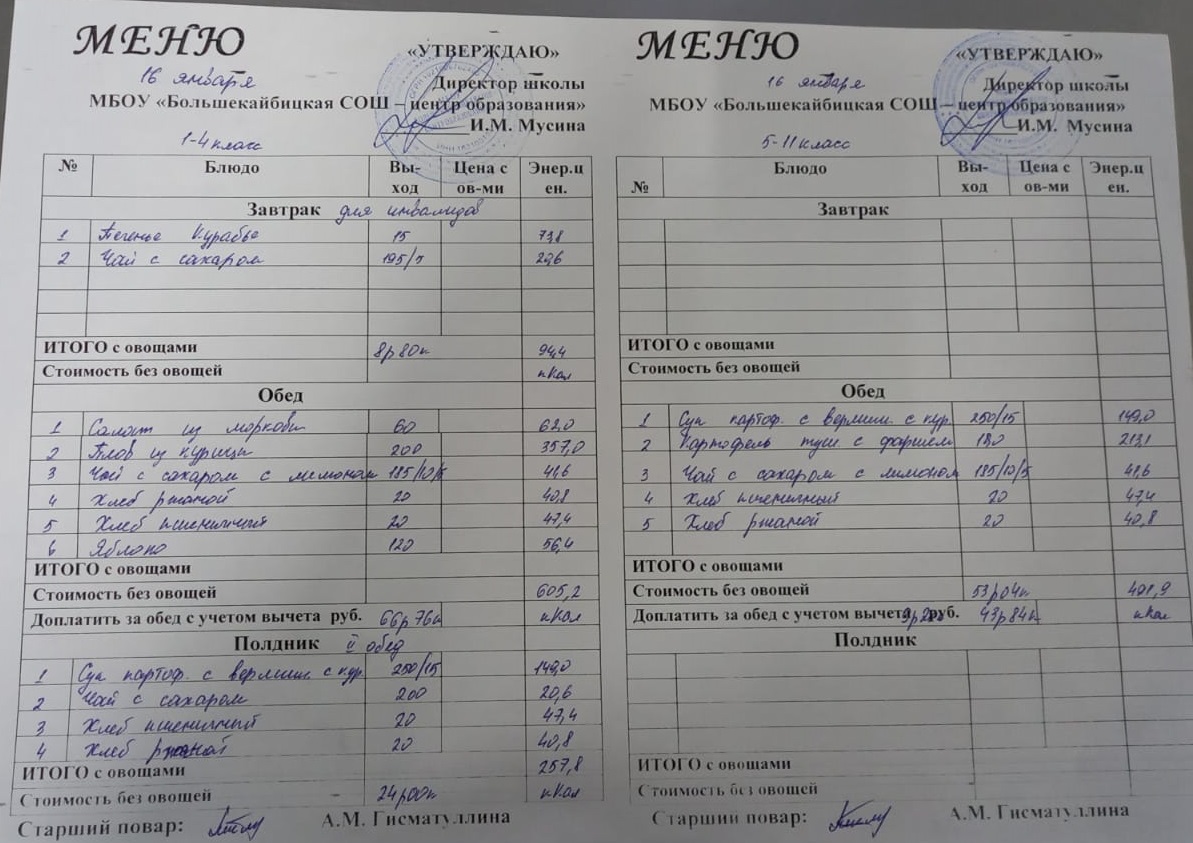 МЕНЮ
16 января
«УТВЕРЖДАЮ»
Директор школы
МБОУ «Большекайбицкая СОШ – центр образования»
И.М. Мусина
1-4 класс
№ Блюдо Вы-ход Цена с ов-ми Энер.цен.
Завтрак для инвалидов
1 Печенье Курабье 15 73,8
2 Чай с сахаром 195/5 20,6
ИТОГО с овощами 8р80к 94,4
Стоимость без овощей кКал
Обед
1 Салат из моркови 60 62,0
2 Плов из курицы 200 357,0
3 Чай с сахаром с лимоном 185/10/5 41,6
4 Хлеб ржаной 20 40,8
5 Хлеб пшеничный 20 47,4
6 Яблоко 120 56,4
ИТОГО с овощами
Стоимость без овощей 605,2
Доплатить за обед с учетом вычета руб. 66р76к кКал
Полдник II обед
1 Суп картоф. с вермиш. с кур. 250/15 149,0
2 Чай с сахаром 200 20,6
3 Хлеб пшеничный 20 47,4
4 Хлеб ржаной 20 40,8
ИТОГО с овощами 257,8
Стоимость без овощей 24р00к кКал
Старший повар: А.М. Гисматуллина
МЕНЮ
16 января
«УТВЕРЖДАЮ»
Директор школы
МБОУ «Большекайбицкая СОШ – центр образования»
И.М. Мусина
5-11 класс
№ Блюдо Вы-ход Цена с ов-ми Энер.цен.
Завтрак
ИТОГО с овощами
Стоимость без овощей
Обед
1 Суп картоф. с вермиш. с кур. 250/15 149,0
2 Картофель туш. с фаршем 180 213,1
3 Чай с сахаром с лимоном 185/10/5 41,6
4 Хлеб пшеничный 20 47,4
5 Хлеб ржаной 20 40,8
ИТОГО с овощами
Стоимость без овощей 53р04к 491,9
Доплатить за обед с учетом вычета 9р20к руб. 43р84к кКал
Полдник
ИТОГО с овощами
Стоимость без овощей
Старший повар: А.М. Гисматуллина